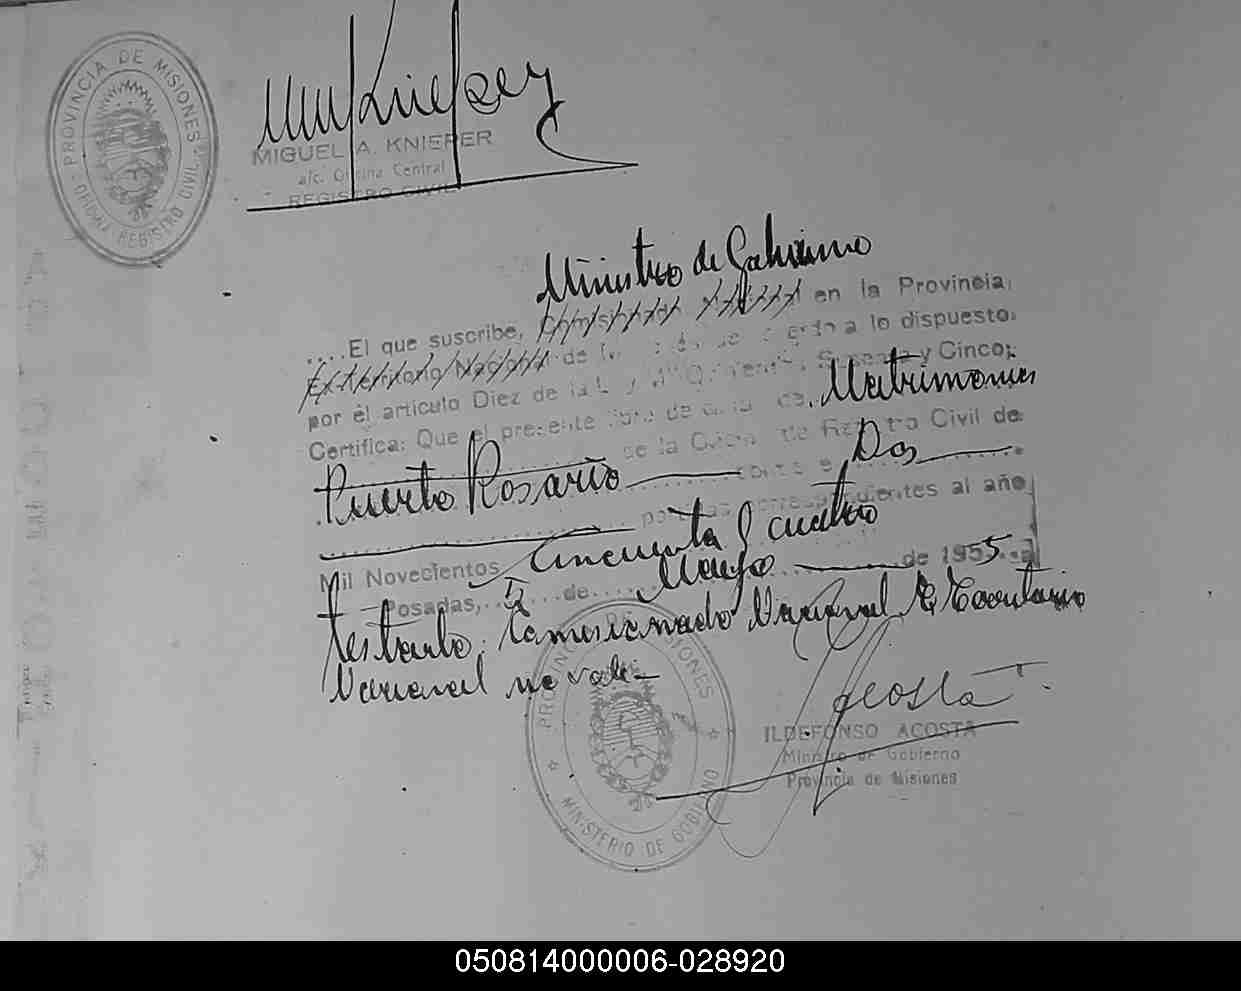 PROVINCIA DE MISIONES
OFICINA REGISTRO CIVIL
MIGUEL A. KNIEPER
a/c. Oficina Central
REGISTRO CIVIL
Ministro de Gobierno
....El que suscribe, Comisionado Nacional en la Provincia,
Ex-Territorio Nacional de acuerdo a lo dispuesto
por el artículo Diez de la Ley y Cinco;
Certifica: Que el presente libro de de Matrimonios
de la Oficina de Registro Civil de
Puerto Rosario Dos
correspondientes al año
Mil Novecientos Cincuenta y cuatro
Posadas, de Mayo de 1955
Testado: Comisionado Nacional Ex Territorio
Nacional no vale.-
PROVINCIA DE MISIONES
MINISTERIO DE GOBIERNO
Acosta
ILDEFONSO ACOSTA
Ministro de Gobierno
Provincia de Misiones
050814000006-028920